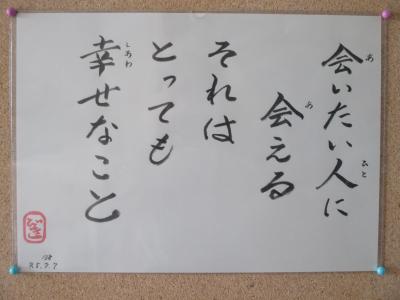 会いたい人に
会える
それは
とっても
幸せなこと
あ
ひと
あ
しあわ
R5.7.7